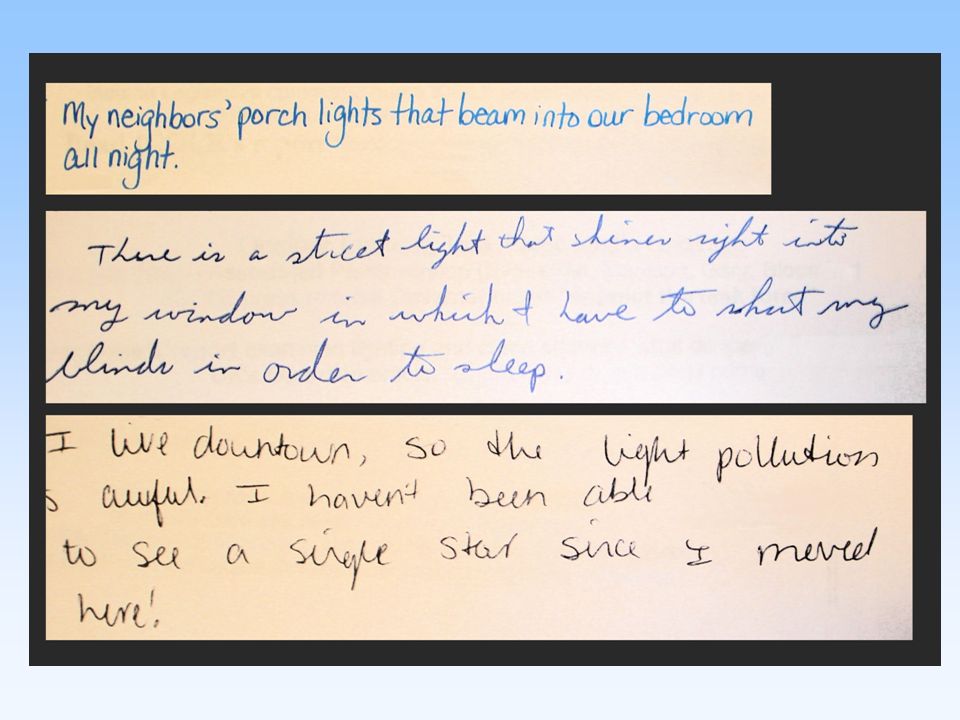 My neighbors' porch lights that beam into our bedroom
all night.
There is a street light that shines right into
my window in which I have to shut my
blinds in order to sleep.
I live downtown, so the light pollution
s awful. I haven't been able
to see a single star since I moved
here!